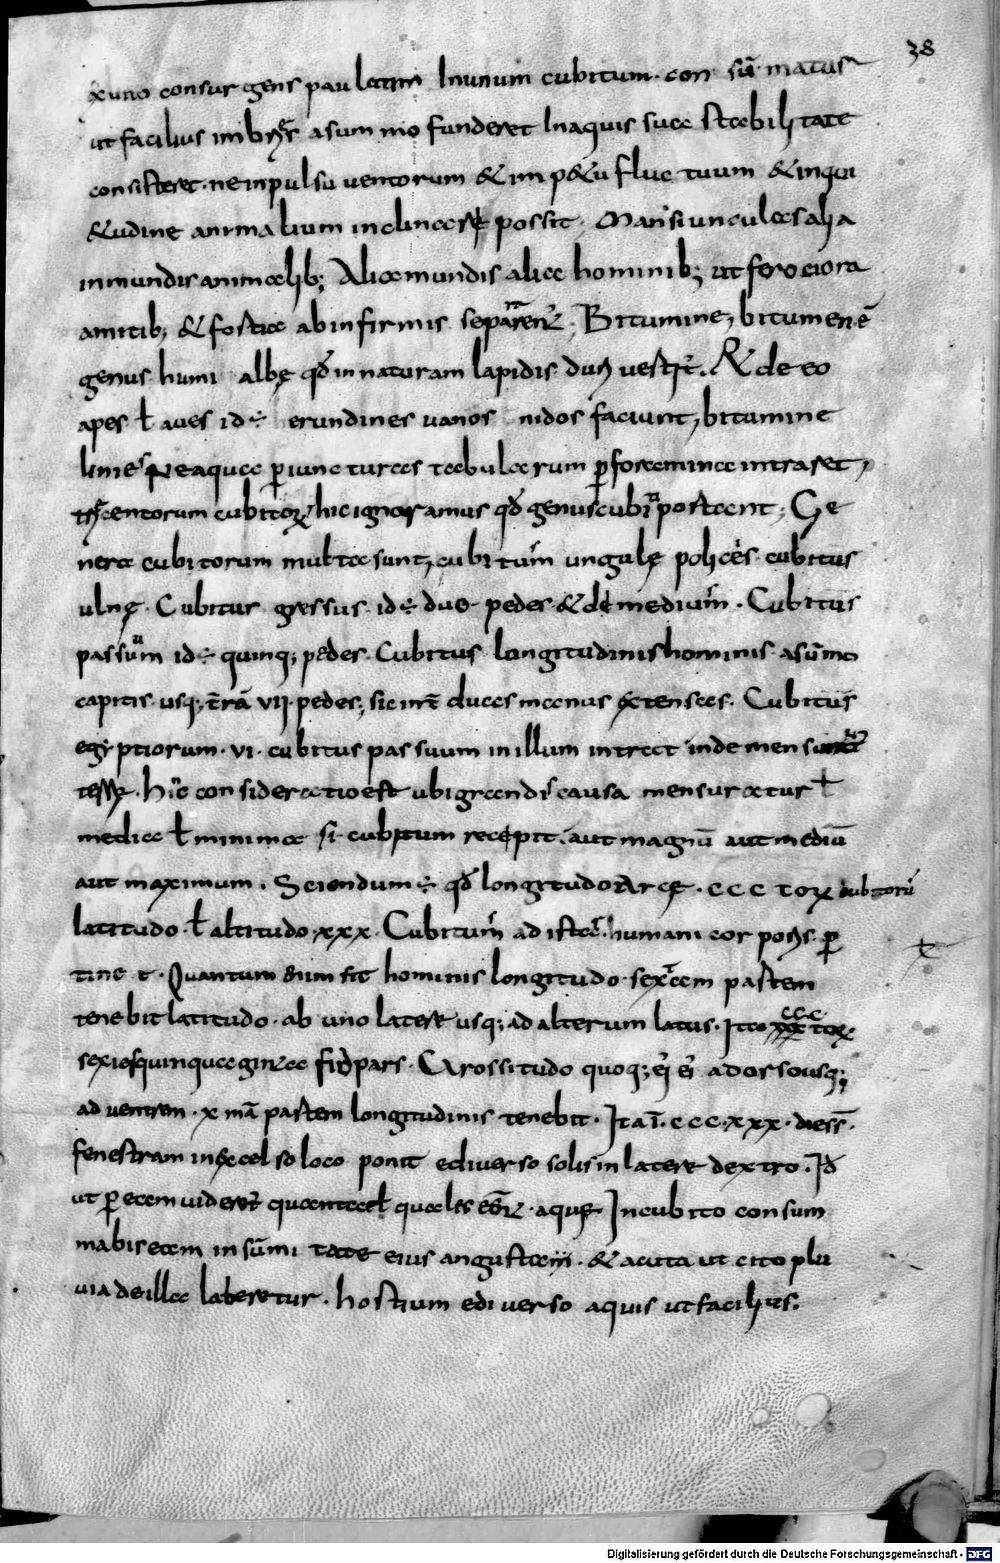 38
ex uno consurgens paulatim In unum cubitum · consūmatus
ut facilius imbrēs a summo funderet In aquis suae stabilitate
consisteret · ne inpulsu ventorum & impetu fluctuum & inqui
&udine animalium inclinare possit · Mansiunculas alia
inmundis animalib; Aliae mundis aliae hominib; ut ferociora
amitib; & fortia ab infirmis separarent̄ ; Bitumine, bitumen ē
genus humi albę qđ in naturam lapidis
apes ł aves id ÷ erundines vanos nidos faciunt, bitumine
linies ne aquae p̄ iuncturas tabularum p̄ foramina intraret,
trēcentorum cubitoꝝ hic ignoramus qđ genus cubiť posteent ; Ge
nera cubitorum multa sunt, cubitum ungulę polices · cubitus
ulnę · Cubitus gressus id ÷ duo pedes & demedium · Cubitus
passuum id ÷ quinq; pedes · Cubitus longitudinis hominis · a sūmo
capitis · usq; t̄rā VII · pedes; sic int̄ duas manus extensas · Cubitus
egyptiorum · VI · cubitus passuum in illum intrat inde mensura
hic consideratio est ubi grandis causa mensuratur ł
mediae ł minima si cubitum recepit · aut magnū aut mediū
aut maximum · Sciendum ÷ qđ longitudo Arcę · CCC toꝝ cubitorū
latitudo · ł altitudo · XXX · Cubitum ad istar humani corporis p̄
tinet · Quantum enim fit hominis longitudo · sextam partem
tenebit latitudo · ab uno latere usq; ad alterum latus · Ita CCC toꝝ
sexies quinquaginta fit pars · Grossitudo quoq; ei a dorso usq;
ad ventrem · X mā partem longitudinis tenebit · Ita ī · CCC · XXX ·
fenestram in excelso loco ponit e diverso solis in latere dextro · Id
ut p̄ eam videret̄ quanta ł quales aquę In cubito consum
mabis eam in sūmitate eius angustam · & acuta ut cito plu
via de illa laberetur · hostium e diverso aquis ut facilius ·
Digitalisierung gefördert durch die Deutsche Forschungsgemeinschaft - DFG